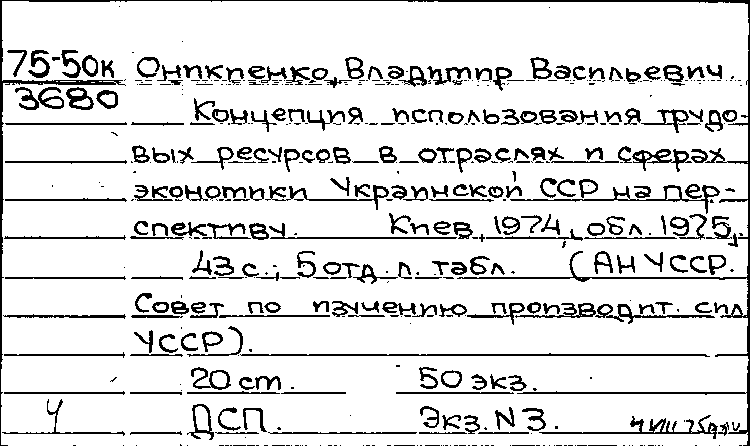 75-50к Оникиенко, Владимир Васильевич.
3680 Концепция использования трудо-
вых ресурсов в отраслях и сферах
экономики Украинской ССР на пер-
спективу. Киев, 1974, обл. 1975.
43 с.; 5 отд. л. табл. (АН УССР.
Совет по изучению производит. сил
УССР).
20 см. 50 экз.
Ч ДСП. Экз. N 3.